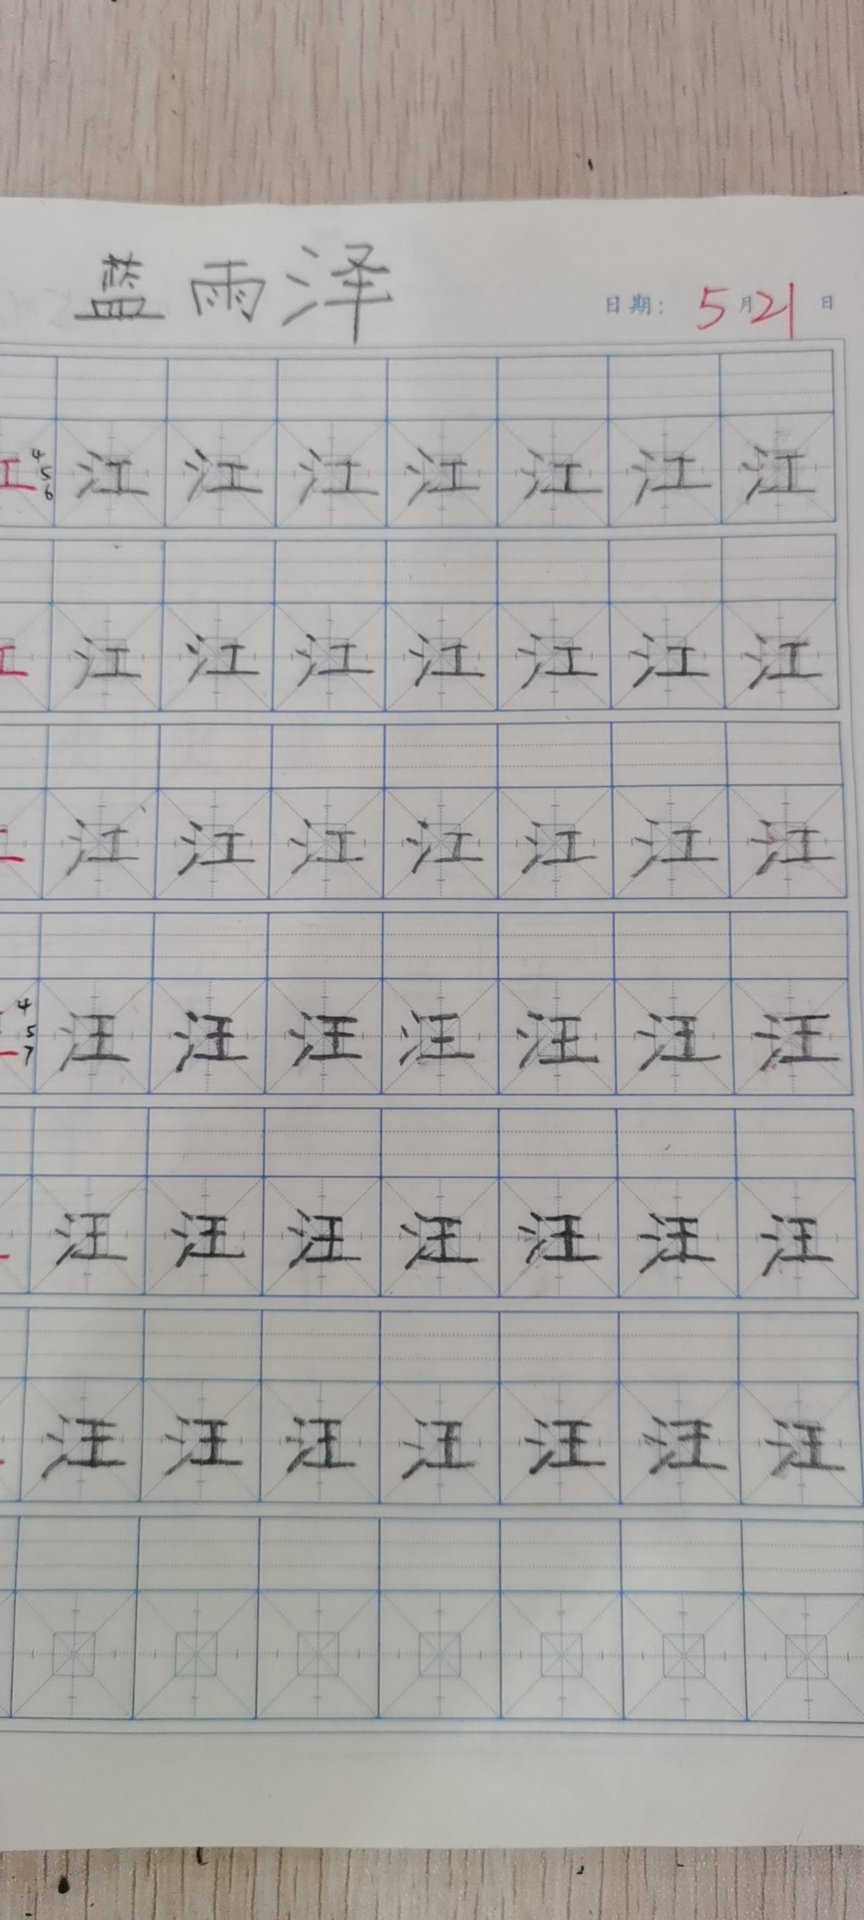 蓝雨泽 日期： 5月21日
江 4 5 6 江 江 江 江 江 江 江
江 江 江 江 江 江 江
江 江 江 江 江 江 江
4 5 7 汪 汪 汪 汪 汪 汪 汪
汪 汪 汪 汪 汪 汪 汪
汪 汪 汪 汪 汪 汪 汪